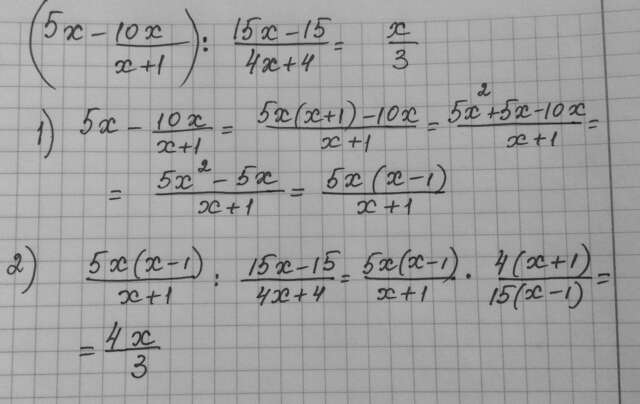 (5x - 10x/(x+1)) : (15x-15)/(4x+4) = x/3
1) 5x - 10x/(x+1) = (5x(x+1)-10x)/(x+1) = (5x²+5x-10x)/(x+1) =
= (5x²-5x)/(x+1) = 5x(x-1)/(x+1)
2) 5x(x-1)/(x+1) : (15x-15)/(4x+4) = 5x(x-1)/(x+1) · 4(x+1)/(15(x-1)) =
= 4x/3